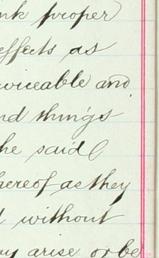 nk proper
effects as
viceable and
nd things
he said
hereof as they
d without
ay arise or be